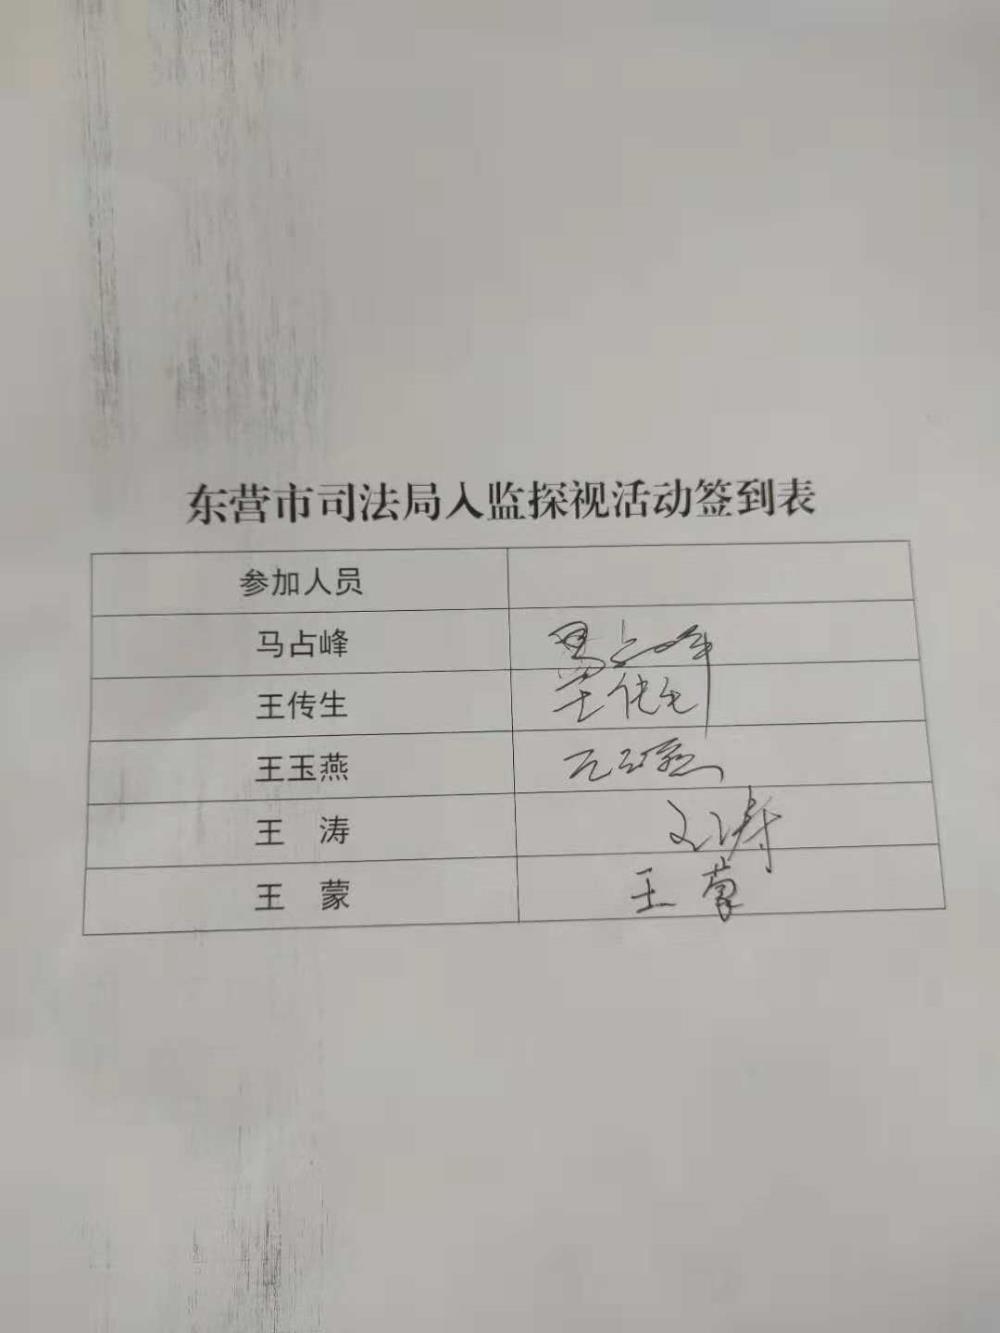 东营市司法局入监探视活动签到表
参加人员
马占峰 马占峰
王传生 王传生
王玉燕 王玉燕
王 涛 王涛
王 蒙 王蒙